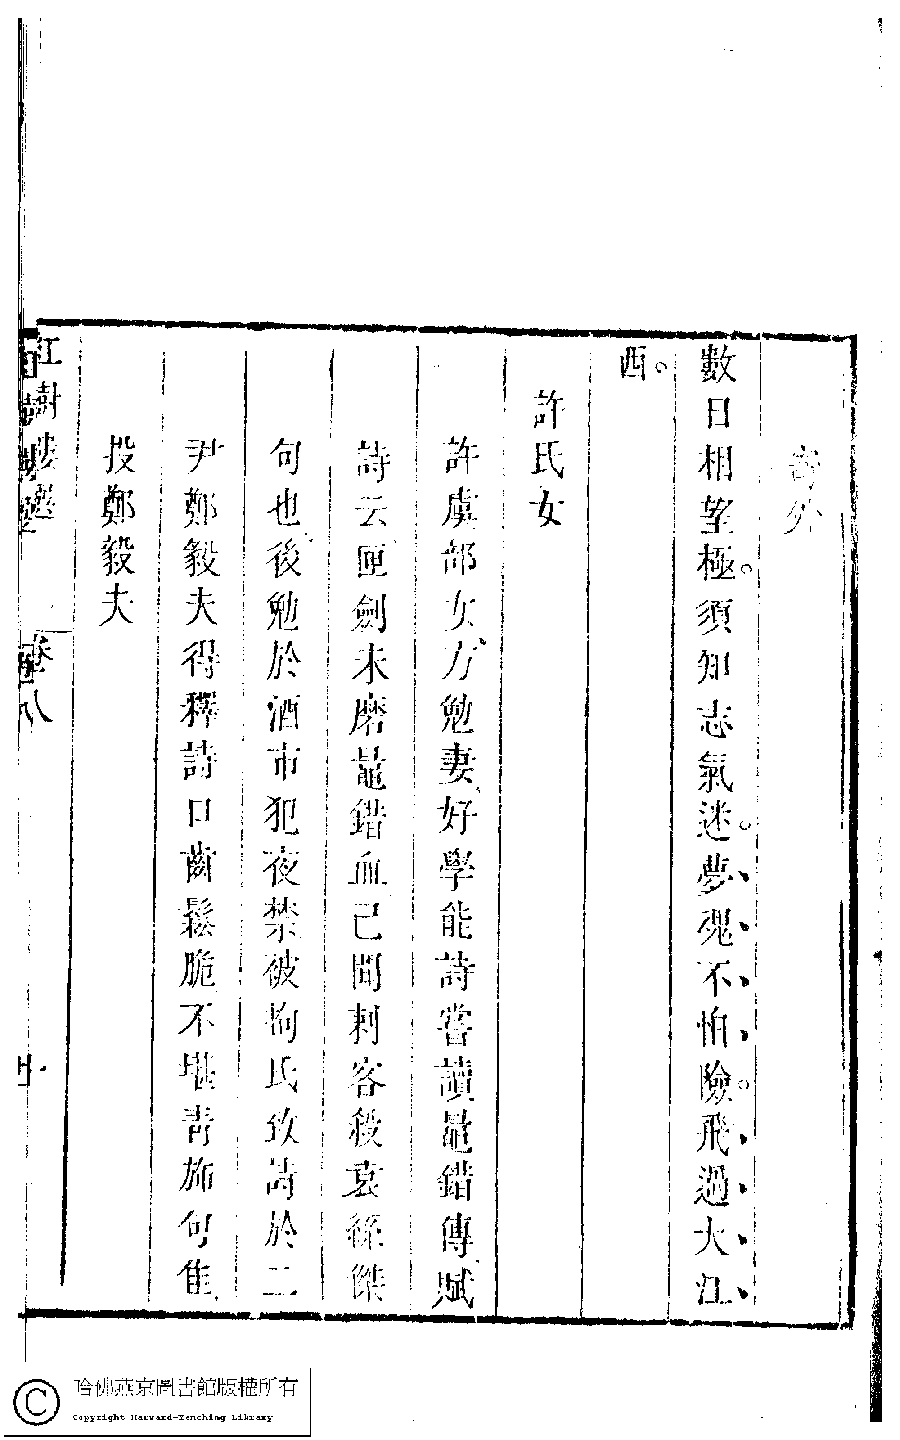 寄外
數日相望極須知志氣迷夢魂不怕險飛過大江
西
許氏女
許虞部女方勉妻好學能詩嘗讀鼂錯傳賦
詩云匣劍未磨鼂錯血已聞刺客殺袁絲傑
句也後勉於酒市犯夜禁被拘氏致詩於二
尹鄭毅夫得釋詩曰齒鬆脆不堪靑施句佳
投鄭毅夫
紅樹樓選
卷八
哈佛燕京圖書館版權所有
Copyright Harvard-Yenching Library